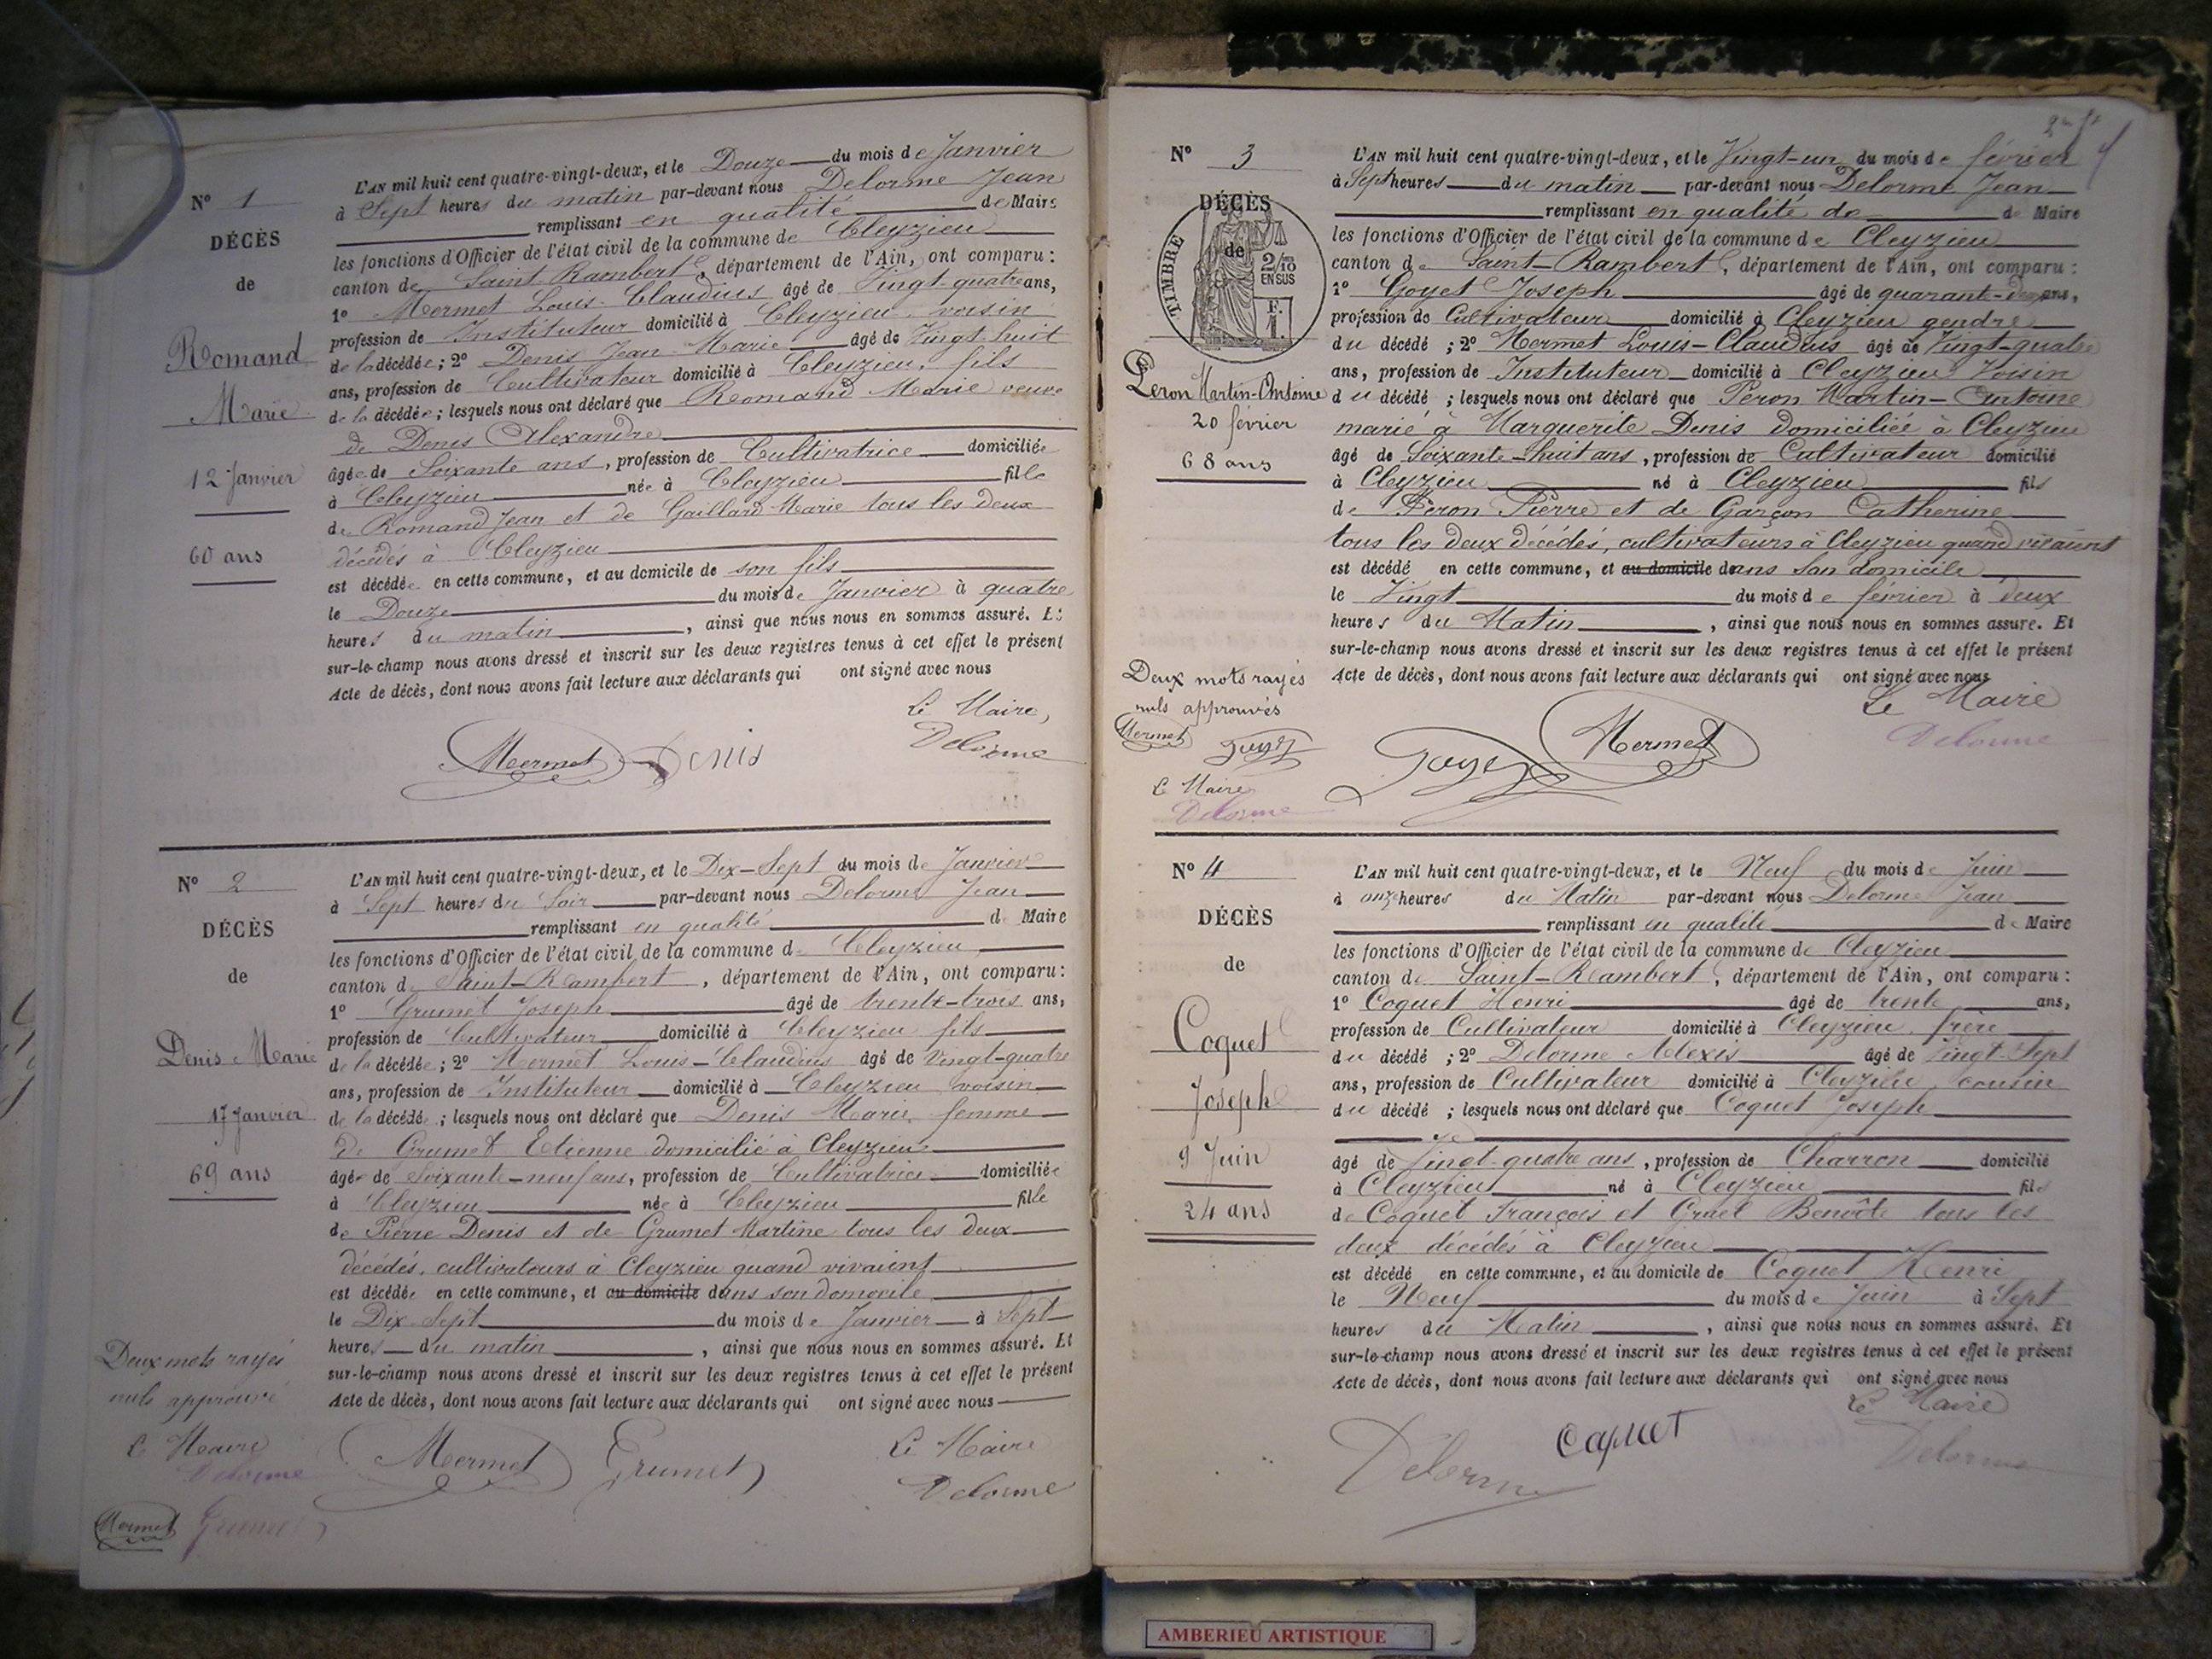 N° 1
DÉCÈS
de
Romand
Marie
12 Janvier
60 ans
L'AN mil huit cent quatre-vingt-deux, et le Douze du mois de Janvier
à Sept heures du matin par-devant nous Delorme Jean
remplissant en qualité de Maire
les fonctions d'Officier de l'état civil de la commune de Cleyzieu
canton de Saint-Rambert, département de l'Ain, ont comparu :
1° Mermet Louis-Claudius âgé de Vingt-quatre ans,
profession de Instituteur domicilié à Cleyzieu, voisin
de la décédée ; 2° Denis Jean-Marie âgé de Vingt-huit
ans, profession de Cultivateur domicilié à Cleyzieu, fils
de la décédée ; lesquels nous ont déclaré que Romand Marie veuve
de Denis Alexandre
âgée de Soixante ans, profession de Cultivatrice domiciliée
à Cleyzieu née à Cleyzieu fille
de Romand Jean et de Gaillard Marie tous les deux
décédés à Cleyzieu
est décédée en cette commune, et au domicile de son fils
le Douze du mois de Janvier à quatre
heures du matin, ainsi que nous nous en sommes assuré. Et
sur-le-champ nous avons dressé et inscrit sur les deux registres tenus à cet effet le présent
Acte de décès, dont nous avons fait lecture aux déclarants qui ont signé avec nous
Le Maire,
Mermet Denis Delorme
N° 2
DÉCÈS
de
Denis Marie
17 Janvier
69 ans
Deux mots rayés
nuls approuvé
Le Maire
Delorme
Mermet Grumet
L'AN mil huit cent quatre-vingt-deux, et le Dix-Sept du mois de Janvier
à Sept heures du Soir par-devant nous Delorme Jean
remplissant en qualité de Maire
les fonctions d'Officier de l'état civil de la commune de Cleyzieu
canton de Saint-Rambert, département de l'Ain, ont comparu :
1° Grumet Joseph âgé de trente-trois ans,
profession de Cultivateur domicilié à Cleyzieu fils
de la décédée ; 2° Mermet Louis-Claudius âgé de Vingt-quatre
ans, profession de Instituteur domicilié à Cleyzieu voisin
de la décédée ; lesquels nous ont déclaré que Denis Marie, femme
de Grumet Etienne domicilié à Cleyzieu
âgée de Soixante-neuf ans, profession de Cultivatrice domiciliée
à Cleyzieu née à Cleyzieu fille
de Pierre Denis et de Grumet Martine tous les deux
décédés, cultivateurs à Cleyzieu quand vivaient
est décédée en cette commune, et au domicile dans son domicile
le Dix-Sept du mois de Janvier à Sept
heures du matin, ainsi que nous nous en sommes assuré. Et
sur-le-champ nous avons dressé et inscrit sur les deux registres tenus à cet effet le présent
Acte de décès, dont nous avons fait lecture aux déclarants qui ont signé avec nous
Le Maire
Mermet Grumet Delorme
N° 3
DÉCÈS
de
TIMBRE
2/10
EN SUS
F.
1.
Peron Martin-Antoine
20 février
68 ans
Deux mots rayés
nuls approuvés
Mermet Goyet
Le Maire
Delorme
L'AN mil huit cent quatre-vingt-deux, et le Vingt-un du mois de février
à Sept heures du matin par-devant nous Delorme Jean
remplissant en qualité de de Maire
les fonctions d'Officier de l'état civil de la commune de Cleyzieu
canton de Saint-Rambert, département de l'Ain, ont comparu :
1° Goyet Joseph âgé de quarante-deux ans,
profession de Cultivateur domicilié à Cleyzieu gendre
du décédé ; 2° Mermet Louis-Claudius âgé de Vingt-quatre
ans, profession de Instituteur domicilié à Cleyzieu Voisin
du décédé ; lesquels nous ont déclaré que Peron Martin-Antoine
marié à Marguerite Denis domiciliée à Cleyzieu
âgé de Soixante-huit ans, profession de Cultivateur domicilié
à Cleyzieu né à Cleyzieu fils
de Peron Pierre et de Garçon Catherine
tous les deux décédés, cultivateurs à Cleyzieu quand vivaient
est décédé en cette commune, et au domicile dans son domicile
le Vingt du mois de février à deux
heures du Matin, ainsi que nous nous en sommes assuré. Et
sur-le-champ nous avons dressé et inscrit sur les deux registres tenus à cet effet le présent
Acte de décès, dont nous avons fait lecture aux déclarants qui ont signé avec nous
Le Maire
Goyet Mermet Delorme
N° 4
DÉCÈS
de
Coquet
Joseph
9 Juin
24 ans
L'AN mil huit cent quatre-vingt-deux, et le Neuf du mois de Juin
à onze heures du Matin par-devant nous Delorme Jean
remplissant en qualité de Maire
les fonctions d'Officier de l'état civil de la commune de Cleyzieu
canton de Saint-Rambert, département de l'Ain, ont comparu :
1° Coquet Henri âgé de trente ans,
profession de Cultivateur domicilié à Cleyzieu, frère
du décédé ; 2° Delorme Alexis âgé de Vingt-Sept
ans, profession de Cultivateur domicilié à Cleyzieu, cousin
du décédé ; lesquels nous ont déclaré que Coquet Joseph
âgé de Vingt-quatre ans, profession de Charron domicilié
à Cleyzieu né à Cleyzieu fils
de Coquet François et Gruel Benoîte tous les
deux décédés à Cleyzieu
est décédé en cette commune, et au domicile de Coquet Henri
le Neuf du mois de Juin à Sept
heures du Matin, ainsi que nous nous en sommes assuré. Et
sur-le-champ nous avons dressé et inscrit sur les deux registres tenus à cet effet le présent
Acte de décès, dont nous avons fait lecture aux déclarants qui ont signé avec nous
Le Maire
Delorme Coquet Delorme
AMBERIEU ARTISTIQUE